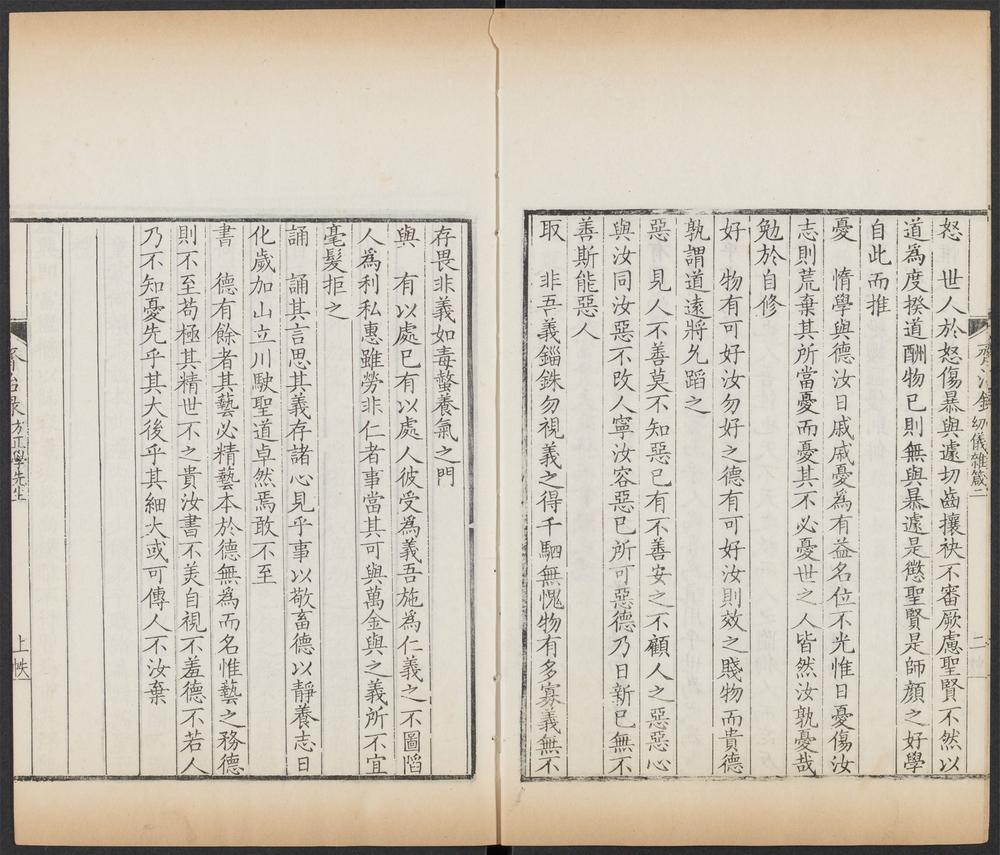 齊治錄 幼儀雜箴二
二
怒 世人於怒傷暴與遽切齒攘袂不審厥慮聖賢不然以
道為度揆道酬物已則無與暴遽是懲聖賢是師顏之好學
自此而推
憂 惰學與德汝日戚戚憂為有益名位不光惟日憂傷汝
志則荒棄其所當憂而憂其不必憂世之人皆然汝孰憂哉
勉於自修
好 物有可好汝勿好之德有可好汝則效之賤物而貴德
孰謂道遠將允蹈之
惡 見人不善莫不知惡已有不善安之不顧人之惡惡心
與汝同汝惡不攺人寧汝容惡已所可惡德乃日新已無不
善斯能惡人
取 非吾義錙銖勿視義之得千駟無愧物有多寡義無不
存畏非義如毒螫養氣之門
與 有以處已有以處人彼受為義吾施為仁義之不圖䧟
人為利私惠雖勞非仁者事當其可與萬金與之義所不宜
毫髮拒之
誦 誦其言思其義存諸心見乎事以敬畜德以靜養志日
化歲加山立川駛聖道卓然焉敢不至
書 德有餘者其藝必精藝本於德無為而名惟藝之務德
則不至苟極其精世不之貴汝書不羙自視不羞德不若人
乃不知憂先乎其大後乎其細大或可傳人不汝棄
齊治录 方正學先生
上帙